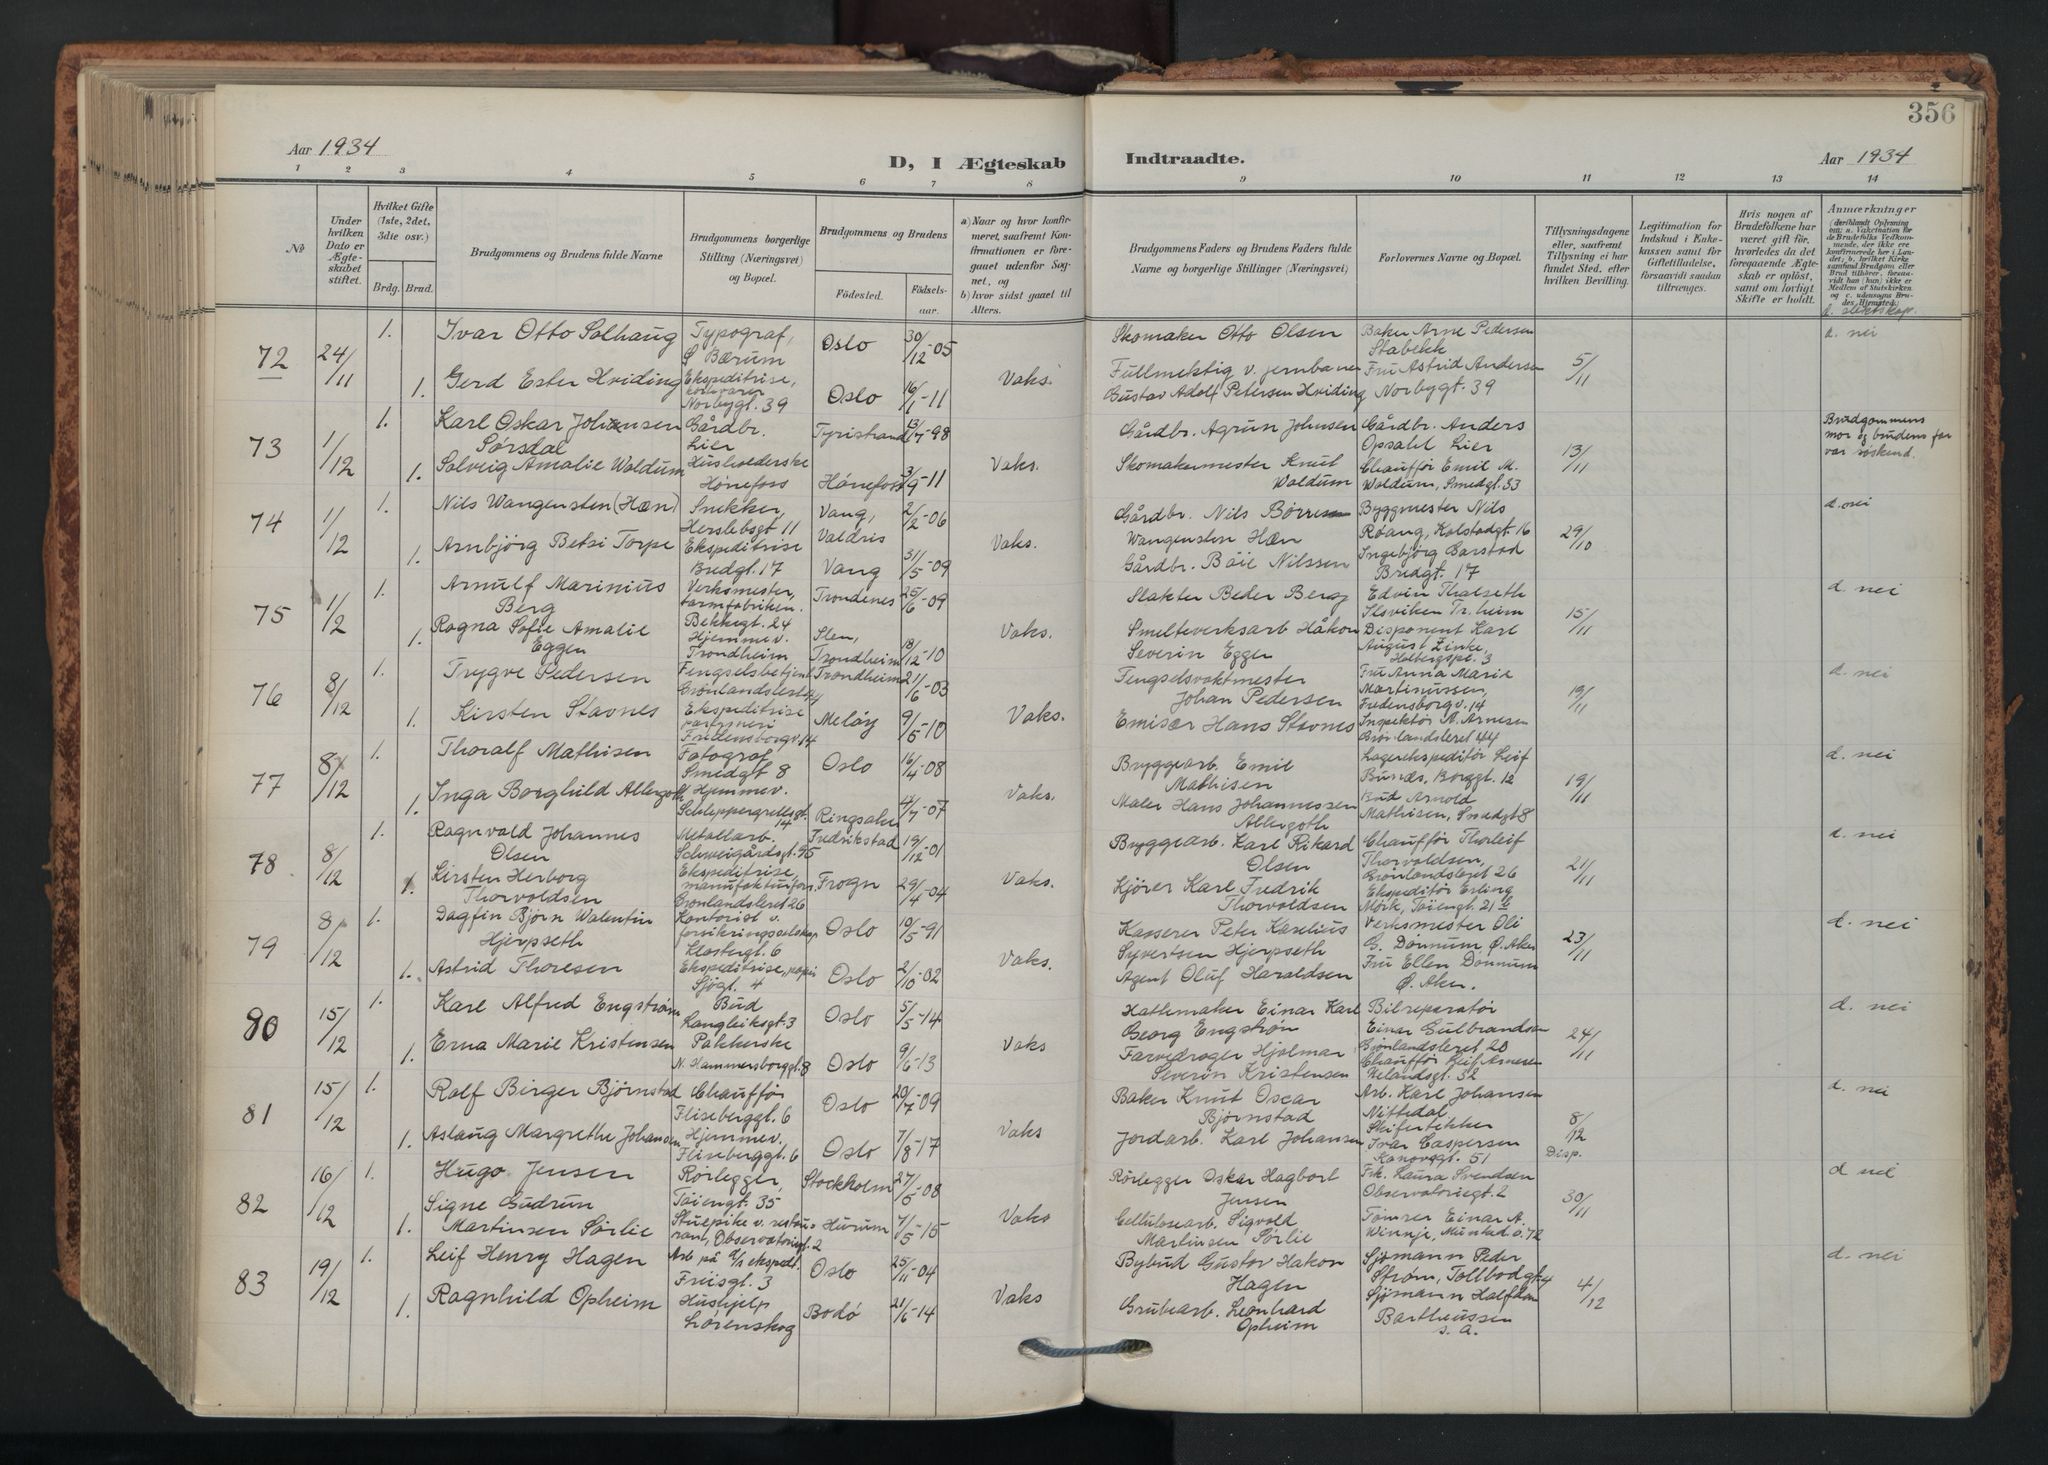 356
Aar 1934
D, I Ægteskab Indtraadte.
Aar 1934
1 2 3 4 5 6 7 8 9 10 11 12 13 14
No
Under hvilken Dato er Ægteskabet stiftet.
Hvilket Gifte (1ste, 2det, 3die osv.)
Brdg. Brud.
Brudgommens og Brudens fulde Navne
Brudgommens borgerlige Stilling (Næringsvei) og Bopæl.
Brudgommens og Brudens
Fødested.
Fødselsaar.
a) Naar og hvor konfirmeret, saafremt Konfirmationen er foregaaet udenfor Sognet, og
b) hvor sidst gaaet til Alters.
Brudgommens Faders og Brudens Faders fulde Navne og borgerlige Stillinger (Næringsvei)
Forlovernes Navne og Bopæl.
Tillysningsdagene eller, saafremt Tillysning ei har fundet Sted, efter hvilken Bevilling.
Legitimation for Indskud i Enkekassen samt for Giftetilladelse, forsaavidt saadan tiltrænges.
Hvis nogen af Brudefolkene har været gift før, hvorledes da det foregaaende Ægteskab er opløst, samt om lovligt Skifte er holdt.
Anmærkninger
(deriblandt Oplysning om: a. Vaccination for de Brudefolks Vedkommende, der ikke ere konfirmerede her i Landet; b. hvilket Kirkesamfund Brudgom eller Brud tilhører, forsaavidt han (hun) ikke er Medlem af Statskirken og c. udensogns Brudes Hjemsted;
d. slektskap.
72 24/11 1. Ivar Otto Solhaug Typograf, S Bærum Oslo 30/12-05 Skomaker Otto Olsen Baker Arne Pedersen Stabekk 5/11 d. nei
1. Gerd Ester Hviding Ekspeditrise, Norbygt. 39 Oslo 16/1-11 Vaks. Fullmektig v. jernbanen Gustav Adolf Petersen Hviding Fru Astrid Andersen Norbygt. 39
73 1/12 1. Karl Oskar Johansen Sørsdal Gårdbr. Lier Tyristrand 13/7-98 Gårdbr. Agrun Johnsen Gårdbr. Anders Opsahl Lier 13/11 Brudgommens mor og brudens far var søskend.
1. Solveig Amalie Waldum Husholderske Hønefoss Hønefoss 3/9-11 Vaks. Skomakermester Knut Waldum Chauffør Emil M. Waldum, Smedgt. 33
74 1/12 1. Nils Wangensten (Hæn) Snekker, Herslebsgt 11 Vang, Valdris 2/2-06 Gårdbr. Nils Børresen Wangensten Hæn Byggmester Nils Røang, Kalstadgt. 16 29/10 d. nei
1. Arnbjörg Betsi Torpe Ekspeditrise Bredgt. 17 Vang 31/5-09 Vaks. Gårdbr. Båie Nilssen Ingebjörg Garstad Bredgt. 17
75 1/2 1. Arnulf Marinius Berg Verksmester, tarmfabriken. Bekkegt. 24 Trondenes 25/6-09 Slakter Peder Berg Edvin Thalseth Ilsviken Tr.heim 15/11 d. nei
1. Ragna Sofie Amalie Eggen Hjemmev. Trondheim Slen, Trondheim 18/12-10 Vaks. Smelteverksarb Håkon Severin Eggen Disponent Karl August Zinke, Holbergspl. 3
76 8/12 1. Trygve Pedersen Fengselsbetjent Grønlandsleret 44 Trondheim 21/6-03 Fengselsvaktmester Johan Pedersen Fru Anna Marie Martinussen, Fredensborgv. 14 19/11 d. nei
1. Kirsten Stavnes Ekspeditrise parfymeri Fredensborgv. 14 Meløy 9/5-10 Vaks. Emisær Hans Stavnes Inspektør A. Arnesen Grønlandsleret 44
77 8/12 1. Thoralf Mathisen Fotograf Smedgt 8 Oslo 16/4-08 Bryggearb. Emil Mathisen Lagerekspeditør Leif Bunæs, Borggt. 12 19/11 d. nei
1. Inga Borghild Allergoth Hjemmev. Schleppegrellsgt. 14 Ringsaker 4/7-07 Vaks. Maler Hans Johannessen Allergoth Bud Arnold Mathisen, Smedgt 8
78 8/12 1. Ragnvald Johannes Olsen Metallarb. Schweigårdsgt. 95 Fredrikstad 19/12-01 Bryggearb. Karl Rikard Olsen Chauffør Thorleif Thorvaldsen, Grønlandsleret 26 21/11 d. nei
1. Kirsten Herborg Thorvaldsen Ekspeditrise, manufakturforr. Grønlandsleret 26 Frogn 29/4-04 Vaks. Kjører Karl Fredrik Thorvaldsen Ekspeditør Erling Mørk, Tøiengt. 21 b
79 8/12 1. Dagfin Bjørn Walentin Hjerpseth Kontorist v. forsikringsselskap Klostergt. 6 Oslo 10/5-91 Kasserer Peter Karelius Syvertsen Hjerpseth Verksmester Oli G. Dønnum Ø. Aker 23/11 d. nei
1. Astrid Thoresen Ekspeditrise, papir Sjøgt. 4 Oslo 2/10-02 Vaks. Agent Oluf Haraldsen Fru Ellen Dønnum Ø. Aker.
80 15/12 1. Karl Alfred Engstrøm Bud Langleiksgt. 3 Oslo 5/5-14 Hattemaker Einar Karl Georg Engstrøm Bilreparatør Einar Gulbrandsen Grønlandsleret 20 24/11 d. nei
1. Erna Marie Kristensen Pakkerske N. Hammersborggt. 8 Oslo 9/6-13 Vaks Farvedroger Hjalmar Severin Kristensen Chauffør Leif Arnesen Welandsgt. 32
81 15/12 1. Rolf Birger Bjørnstad Chauffør Flisberggt. 6 Oslo 20/7-09 Baker Knut Oscar Bjørnstad Arb. Karl Johansen Nittedal 8/12 Disp. d. nei
1. Aslaug Margrethe Johansen Hjemmev., Fliseberggt. 6 Oslo 7/8-17 Vaks Jordarb. Karl Johansen Skifertekker Ivar Caspersen Kanovggt. 51
82 16/12 1. Hugo Jensen Rørlegger, Tøiengt. 35 Stockholm 27/5-08 Rørlegger Oskar Hagbart Jensen Frk. Laura Svendsen Observatoriegt. 2 30/11 d nei
1. Signe Gudrun Martinsen Sørlie Stuepike v. restaurant, Observatoriegt. 2 Hurum 7/5-15 Vaks Cellulosearb. Sigvald Martinsen Sørlie Tømrer Einar A. Winnje,
83 19/12 1. Leif Henry Hagen Arb på a/s ekspedt. Friisgt. 3 Oslo 25/11-04 Bybud Gustav Hakon Hagen Sjømann Peder Strøm, Tollbodgt. 4 4/12 d. nei
1. Ragnhild Opheim Hushjelp Lørenskog Bodø 21/6-14 Vaks Grubearb. Leonhard Opheim Sjømann Halfdan Bartheussen s. a.